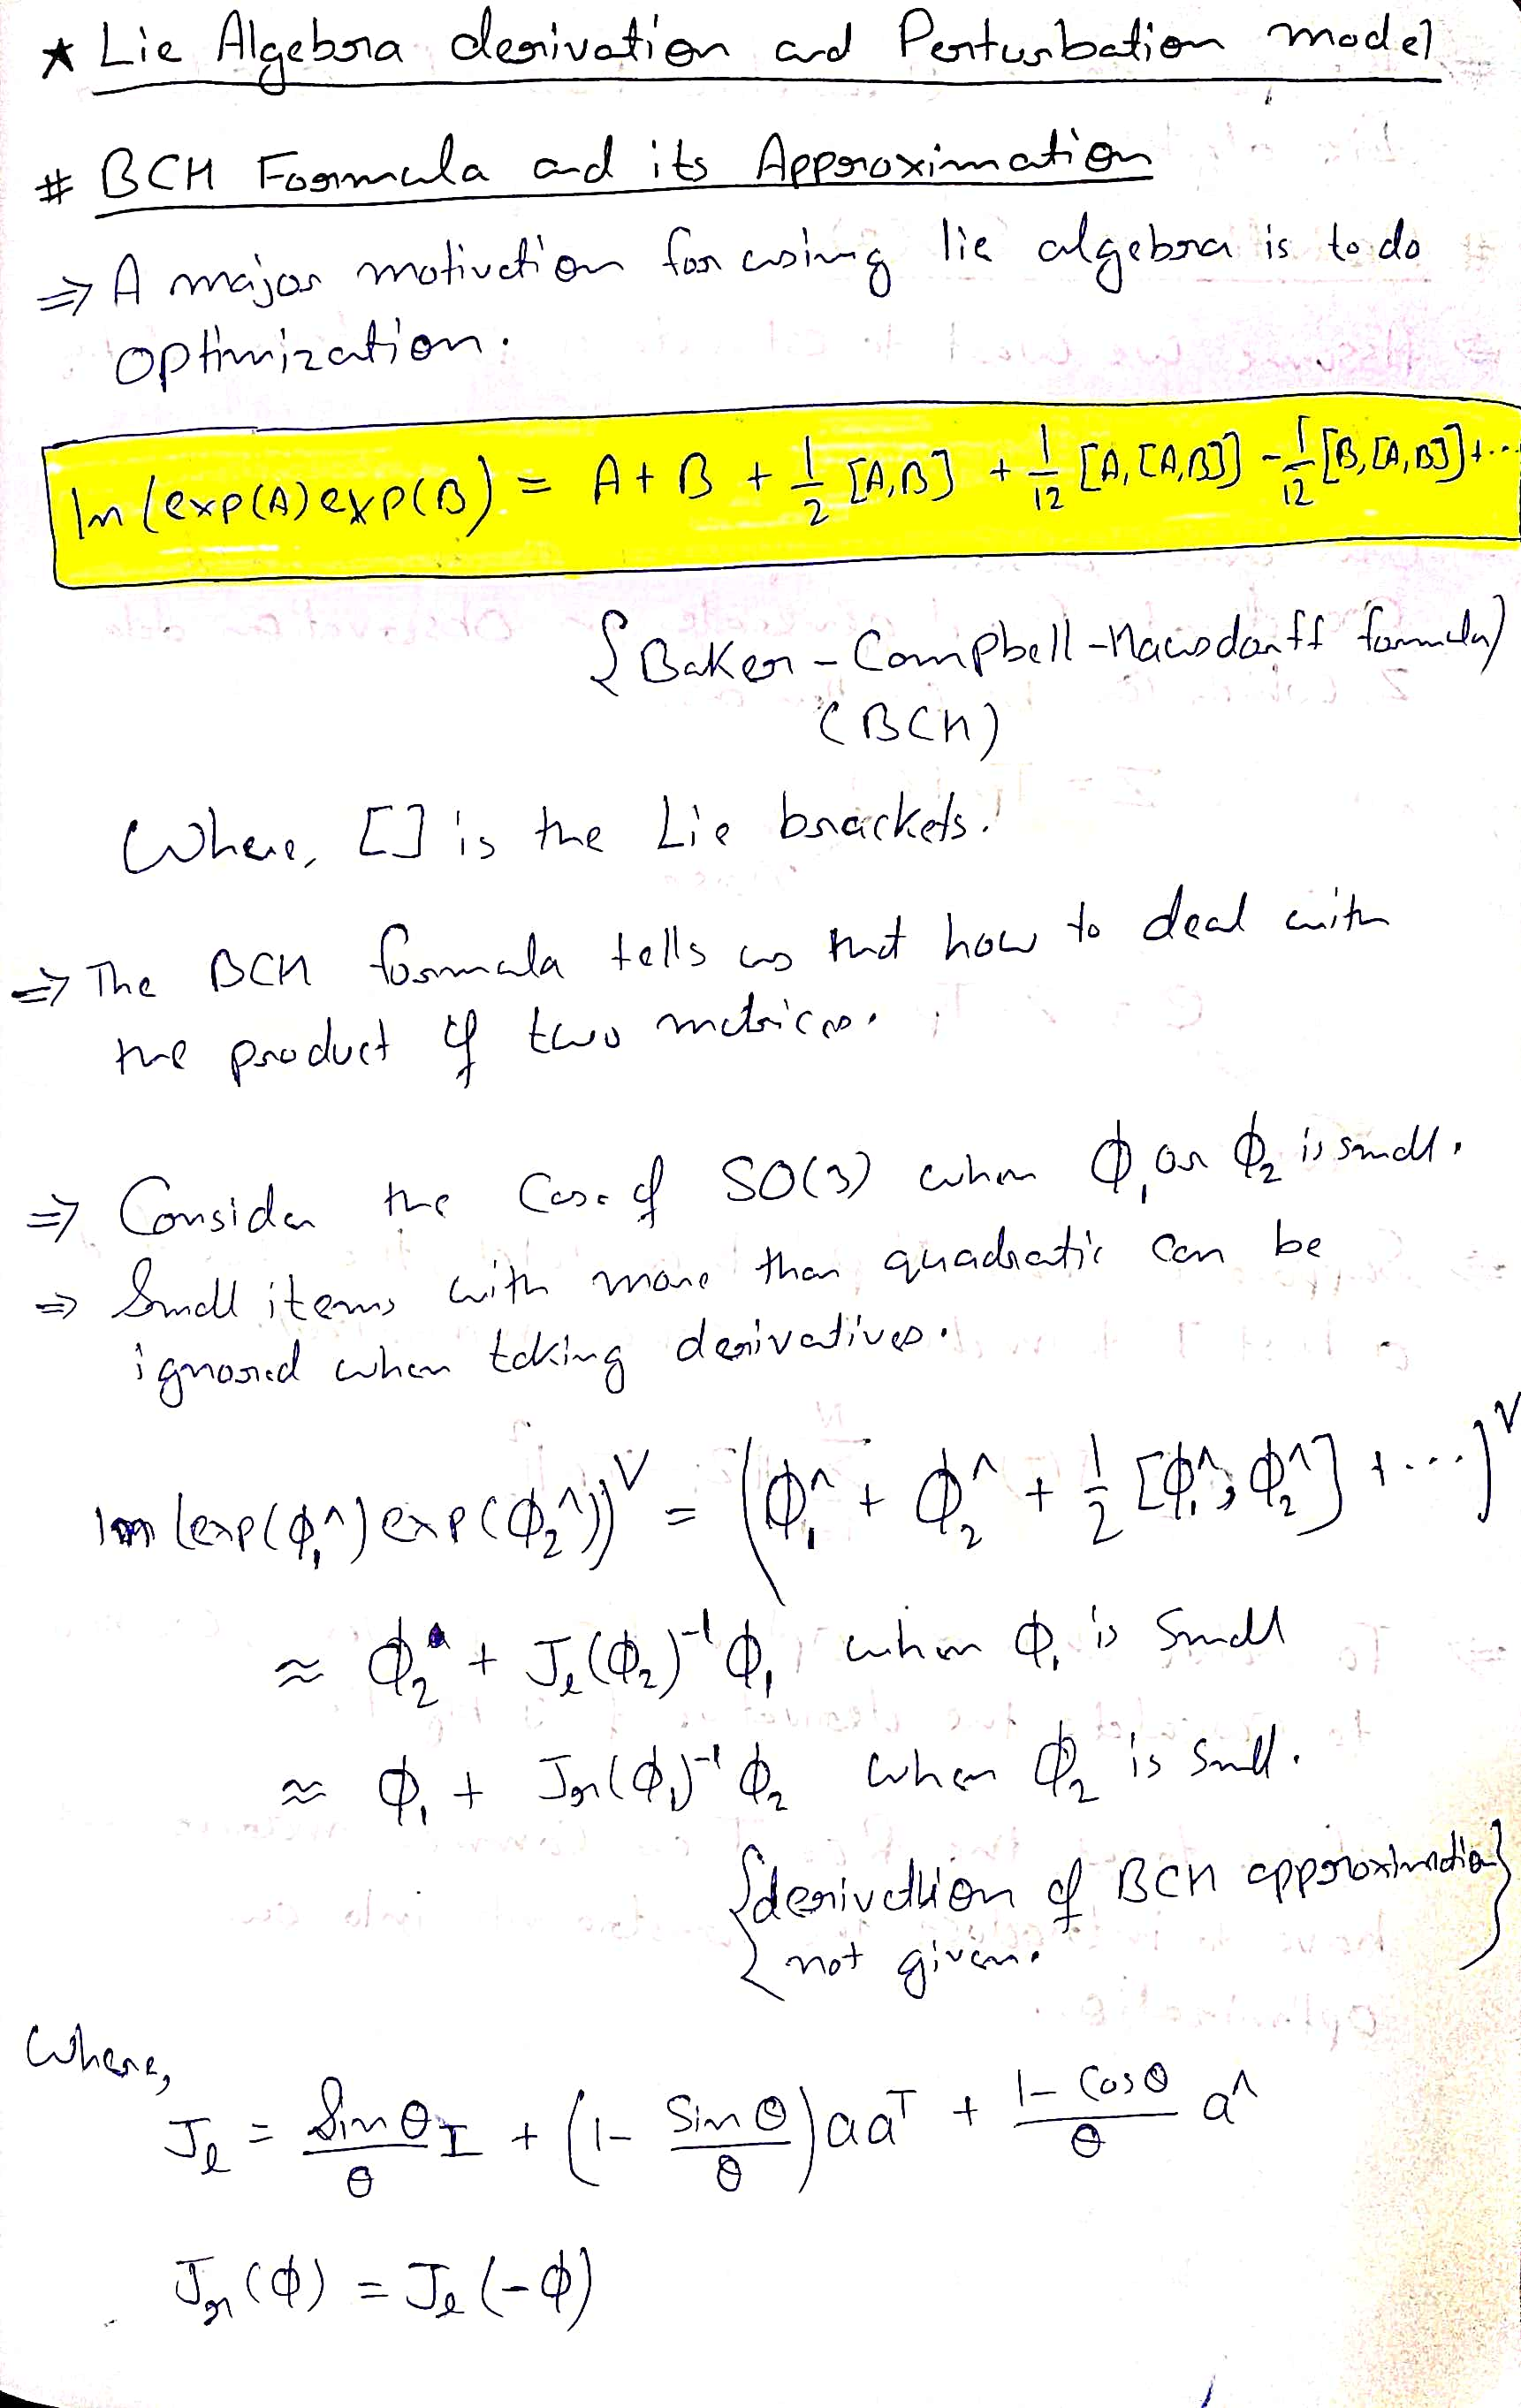 * Lie Algebra derivation and Perturbation model
# BCH Formula and its Approximation
⇒ A major motivation for using lie algebra is to do
optimization.
ln(exp(A)exp(B)) = A + B + 1/2 [A,B] + 1/12 [A,[A,B]] - 1/12 [B,[A,B]] + ...
{Baker - Campbell - Hausdorff formula}
(BCH)
Where, [] is the Lie brackets.
⇒ The BCH formula tells us that how to deal with
the product of two matrices.
⇒ Consider the Case of SO(3) when ϕ₁ or ϕ₂ is small.
⇒ Small items with more than quadratic can be
ignored when taking derivatives.
ln(exp(ϕ₁^)exp(ϕ₂^))^∨ = (ϕ₁^ + ϕ₂^ + 1/2 [ϕ₁^, ϕ₂^] + ...)^∨
≈ ϕ₂ + J_l(ϕ₂)⁻¹ ϕ₁ when ϕ₁ is small
≈ ϕ₁ + J_r(ϕ₁)⁻¹ ϕ₂ when ϕ₂ is small.
{derivation of BCH approximation
not given.}
Where,
J_l = Sinθ/θ I + (1 - Sinθ/θ) aaᵀ + 1 - Cosθ/θ a^
J_r(ϕ) = J_l(-ϕ)